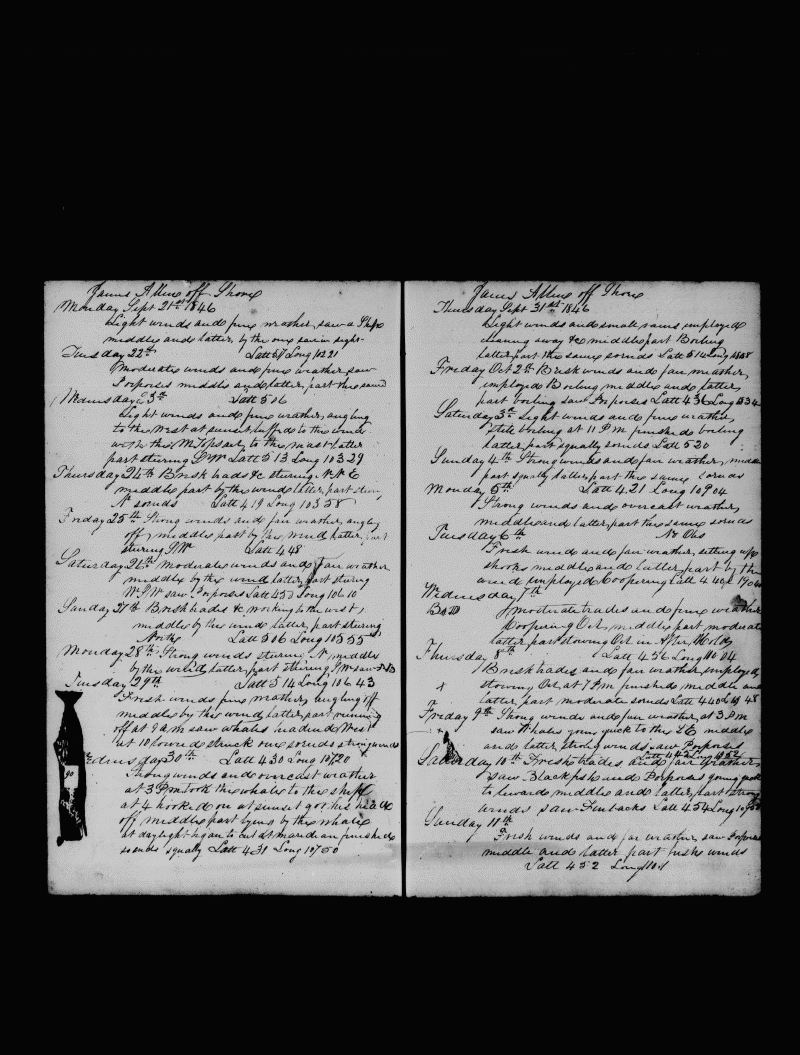 James Allens off Shore
Monday Sept 21st 1846
Light winds and fine weather, saw a Ship
middle and latter, by the one sail in sight
Tuesday 22nd Latt 5 Long 102 21
Moderate winds and fine weather saw
Porpoises middle and latter, part the same
Wednesday 23rd Latt 5 06
Light winds and fine weather, angling
to the West at sunset luff do to the wind
with the M Topsail to the mast latter
part stering SW Latt 5 13 Long 103 29
Thursday 24th Brisk trads &c stering NNE
middle part by the wind latter, part sterin
N so ends Latt 4 19 Long 103 58
Friday 25th Strong winds and fair weather, angling
off, middle part by the wind latter, part
stering SW Latt 4 48
Saturday 26th Moderate winds and fair weather
middle by the wind latter, part stering
W S W saw Porpoises Latt 4 50 Long 106 10
Sunday 27th Brisk trades &c working to the west,
middle by the wind latter, part stering
North Latt 5 06 Long 105 55
Monday 28th Strong winds stering N, middle
by the wind, latter, part stering SW saw
Tuesday 29th Latt 5 14 Long 106 43
Fresh winds fine weather, angling off
middle by the wind, latter, part running
off at 9 AM saw whales headed West
at 10 lowerd struck one so ends strong winds
Wednesday 30th Latt 4 30 Long 107 20
90 Strong winds and overcast weather
at 3 PM took the whales to the ship
at 4 hooked on at sunset got his head
off middle part lying by the whale
at daylight began to cut at meridian finished
so ends squally Latt 4 31 Long 107 50
James Allens off Shore
Thursday Sept 31st 1846
Light winds and small rains employed
clearing away &c middle part Boiling
latter part the same so ends Latt 5 10 Long 108
Friday Oct 2nd Brisk winds and fair weather,
employed Boiling middle and latter,
part boiling saw Porpoises Latt 4 36 Long 34
Saturday 3rd Light winds and fine weather,
still boiling at 11 PM finished boiling
latter part squally so ends Latt 5 20
Sunday 4th Strong winds and fair weather, middle
part squally latter, part the same so ends
Monday 5th Latt 4.21 Long 109 04
Strong winds and overcast weather,
middle and latter, part the same so ends
Tuesday 6th No Obs
Fresh winds and fair weather, setting up
shooks middle and latter, part by the
wind employed Coopering Latt 4 40
Wednesday 7th
Moderate trades and fine weather
Coopering Oil, middle part moderate
latter, part stowing Oil in After, Hold
Thursday 8th Latt 4 56 Long 110 04
Brisk trades and fair weather, employed
x stowing Oil at 7 PM finished middle and
latter, part moderate so ends Latt 4 40 Long 48
Friday 9th Strong winds and fair weather, at 3 PM
saw Whales going quick to the SE middle
and latter, strong winds saw Porpoises
Saturday 10th Fresh trades and fair weather,
saw Blackfish and Porpoises going quick
to leward middle and latter, part strong
winds saw Finbacks Latt 4 54 Long
Sunday 11th
Fresh winds and fair weather, saw Porpoises
middle and latter part fresh winds
Latt 4 52 Long